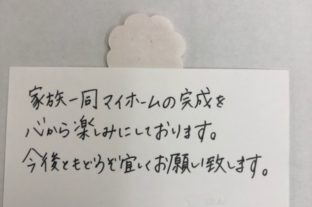 家族一同マイホームの完成を
心から楽しみにしております。
今後ともどうぞ宜しくお願い致します。